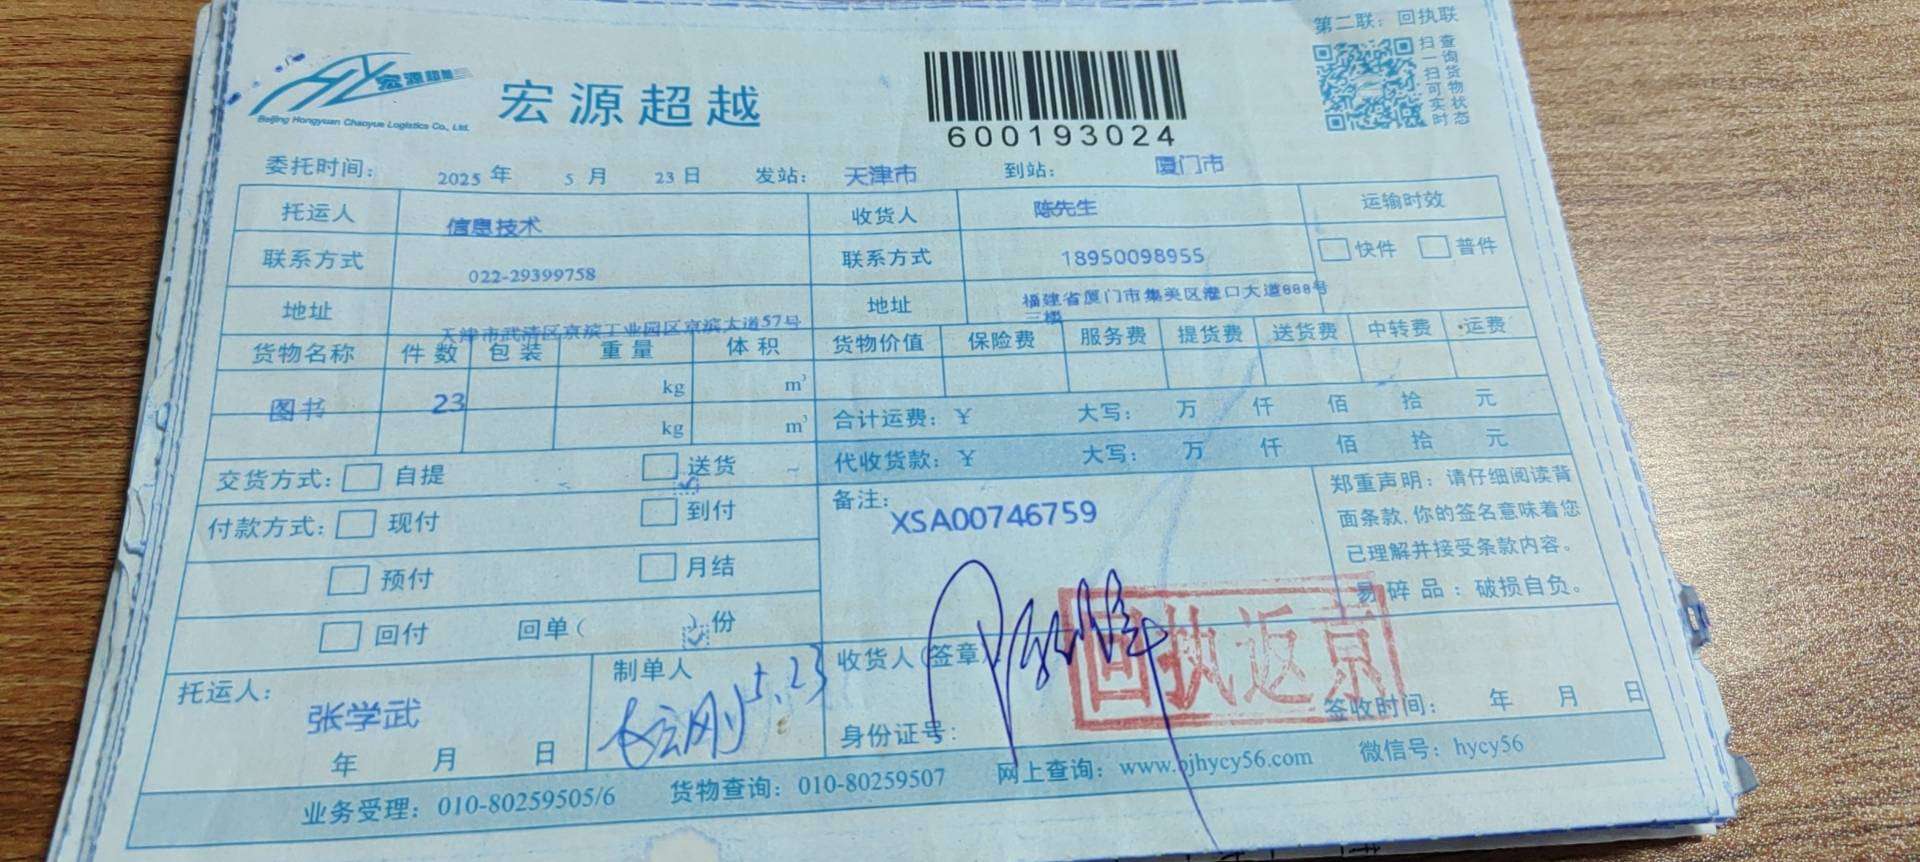 第二联：回执联
宏源超越
Beijing Hongyuan Chaoyue Logistics Co., Ltd.
宏源超越
600193024
扫一扫可实时
查询货物状态
委托时间： 2025 年 5 月 23 日 发站： 天津市 到站： 厦门市
托运人 信息技术 收货人 陈先生 运输时效
联系方式 022-29399758 联系方式 18950098955 快件 普件
地址 天津市武清区京滨工业园区京滨大道57号 地址 福建省厦门市集美区灌口大道888号
三楼
货物名称 件数 包装 重量 体积 货物价值 保险费 服务费 提货费 送货费 中转费 运费
图书 23 kg m³
kg m³
合计运费：￥ 大写： 万 仟 佰 拾 元
代收货款：￥ 大写： 万 仟 佰 拾 元
交货方式： 自提 送货
付款方式： 现付 到付
预付 月结
回付 回单（ 份
备注： XSA00746759
郑重声明：请仔细阅读背
面条款，你的签名意味着您
已理解并接受条款内容。
易碎品：破损自负。
托运人： 张学武
年 月 日
制单人
5.23
收货人（签章）
回执返京
身份证号：
签收时间： 年 月 日
业务受理：010-80259505/6 货物查询：010-80259507 网上查询：www.bjhycy56.com 微信号：hycy56